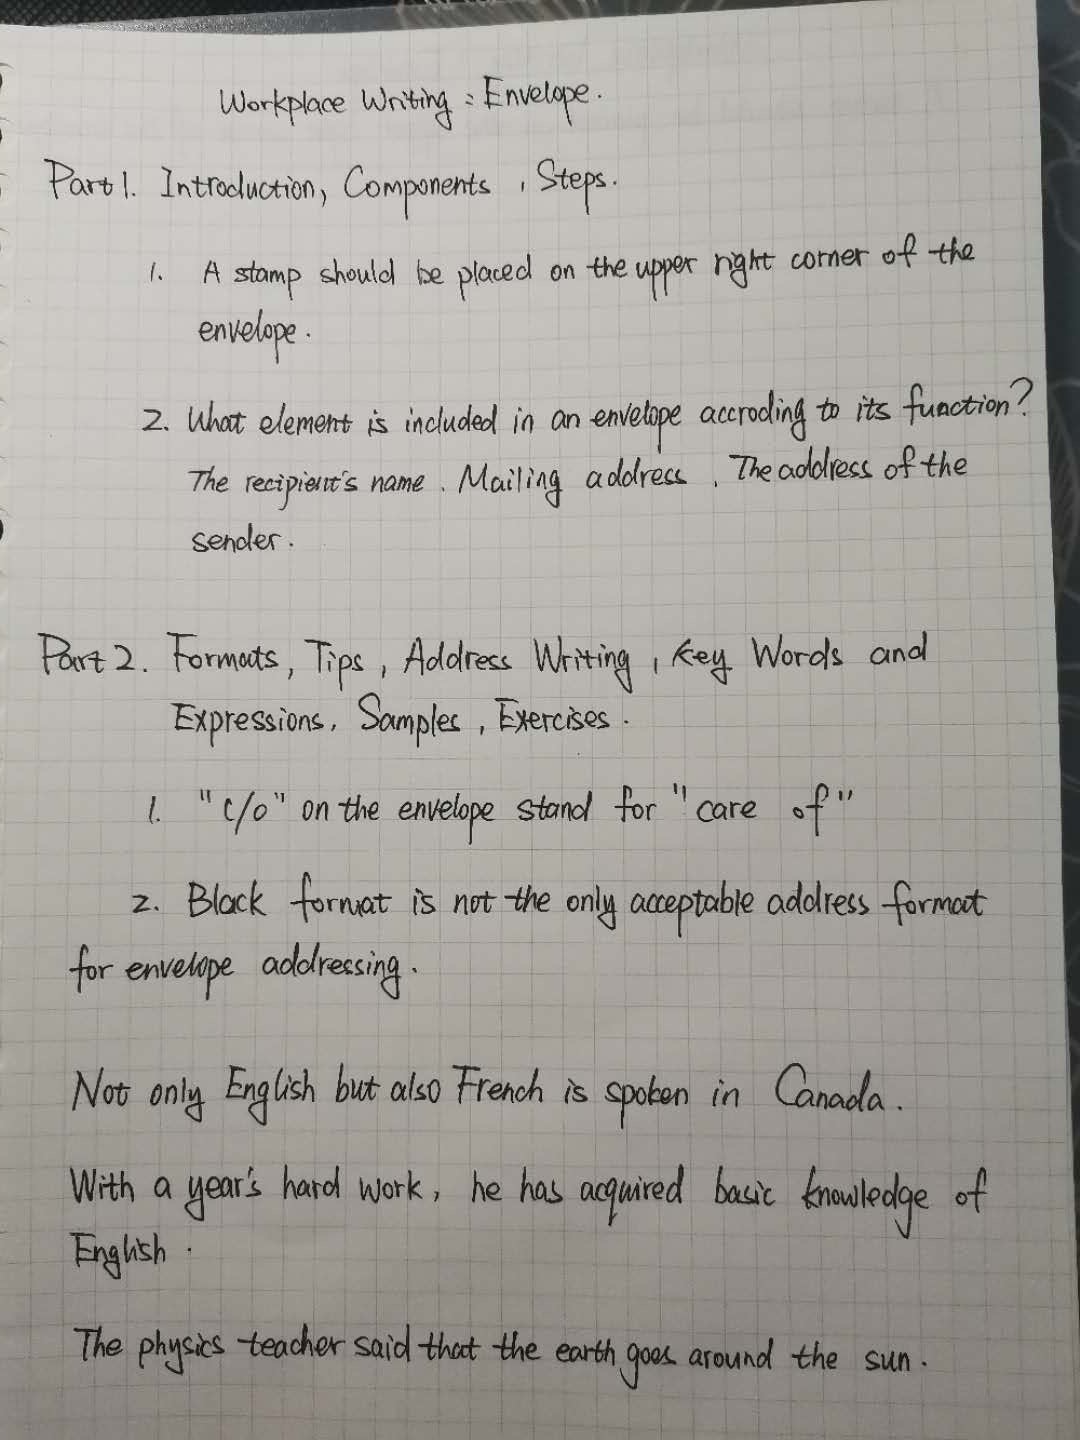 Workplace Writing : Envelope.
Part 1. Introduction, Components , Steps.
1. A stamp should be placed on the upper right corner of the
envelope.
2. What element is included in an envelope accroding to its function?
The recipient's name . Mailing address , The address of the
sender.
Part 2. Formats, Tips, Address Writing, Key Words and
Expressions, Samples, Exercises.
1. "c/o" on the envelope stand for "care of"
2. Black format is not the only acceptable address format
for envelope addressing.
Not only English but also French is spoken in Canada.
With a year's hard work, he has acquired basic knowledge of
English.
The physics teacher said that the earth goes around the sun.